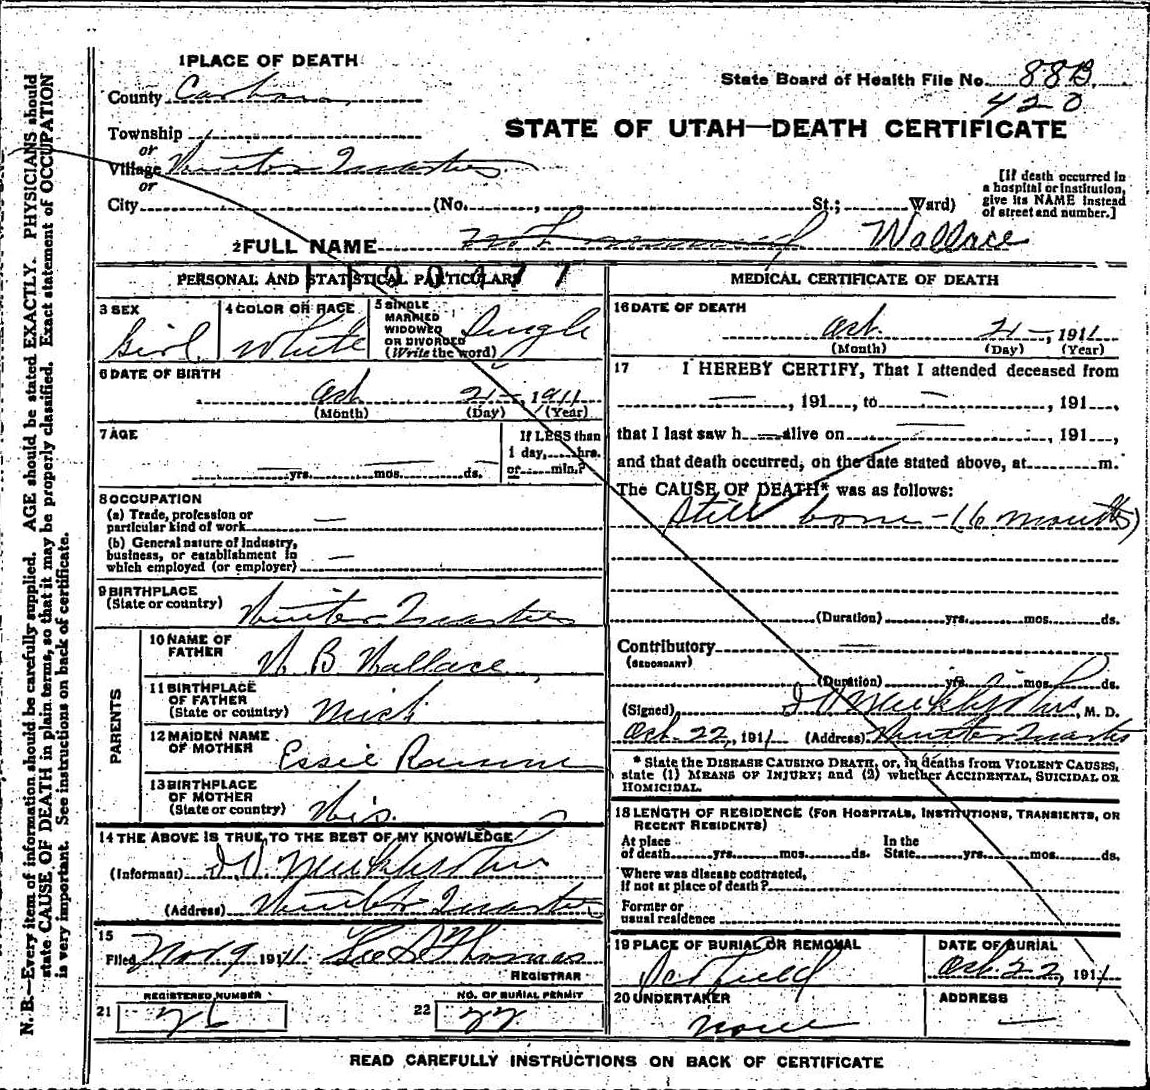 1 PLACE OF DEATH
State Board of Health File No. 88B
420
County Carbon
Township
or
Village Winter Quarters
or
STATE OF UTAH—DEATH CERTIFICATE
[If death occurred in
a hospital or institution,
give its NAME instead
of street and number.]
City (No. , St.; Ward)
2 FULL NAME Not named Wallace
PERSONAL AND STATISTICAL PARTICULARS
3 SEX Girl
4 COLOR OR RACE White
5 SINGLE
MARRIED
WIDOWED
OR DIVORCED
(Write the word) Single
6 DATE OF BIRTH
Oct. 21-, 1911
(Month) (Day) (Year)
7 AGE
yrs. mos. ds.
If LESS than
1 day, hrs.
or min.?
8 OCCUPATION
(a) Trade, profession or
particular kind of work —
(b) General nature of industry,
business, or establishment in
which employed (or employer) —
9 BIRTHPLACE
(State or country) Winter Quarters
PARENTS
10 NAME OF
FATHER W B Wallace
11 BIRTHPLACE
OF FATHER
(State or country) Mich
12 MAIDEN NAME
OF MOTHER Essie
13 BIRTHPLACE
OF MOTHER
(State or country) Wis.
14 THE ABOVE IS TRUE TO THE BEST OF MY KNOWLEDGE
(Informant)
(Address) Winter Quarters
15
Filed Nov 9 1911 Thomas
REGISTRAR
21 REGISTERED NUMBER 26
22 NO. OF BURIAL PERMIT 22
MEDICAL CERTIFICATE OF DEATH
16 DATE OF DEATH
Oct. 21-, 1911
(Month) (Day) (Year)
17 I HEREBY CERTIFY, That I attended deceased from
—, 191 , to —, 191 ,
that I last saw h — alive on —, 191 ,
and that death occurred, on the date stated above, at m.
The CAUSE OF DEATH* was as follows:
Still born - (6 months)
(Duration) yrs. mos. ds.
Contributory —
(SECONDARY)
(Duration) yrs. mos. ds.
(Signed) , M. D.
Oct. 22, 1911 (Address) Winter Quarters
* State the DISEASE CAUSING DEATH, or, in deaths from VIOLENT CAUSES,
state (1) MEANS OF INJURY; and (2) whether ACCIDENTAL, SUICIDAL OR
HOMICIDAL.
18 LENGTH OF RESIDENCE (FOR HOSPITALS, INSTITUTIONS, TRANSIENTS, OR
RECENT RESIDENTS)
At place
of death yrs. mos. ds.
In the
State yrs. mos. ds.
Where was disease contracted,
if not at place of death?
Former or
usual residence
19 PLACE OF BURIAL OR REMOVAL
Scofield
DATE OF BURIAL
Oct 22, 1911
20 UNDERTAKER
none
ADDRESS
—
READ CAREFULLY INSTRUCTIONS ON BACK OF CERTIFICATE
N. B.—Every item of information should be carefully supplied. AGE should be stated EXACTLY. PHYSICIANS should
state CAUSE OF DEATH in plain terms, so that it may be properly classified. Exact statement of OCCUPATION
is very important. See instructions on back of certificate.